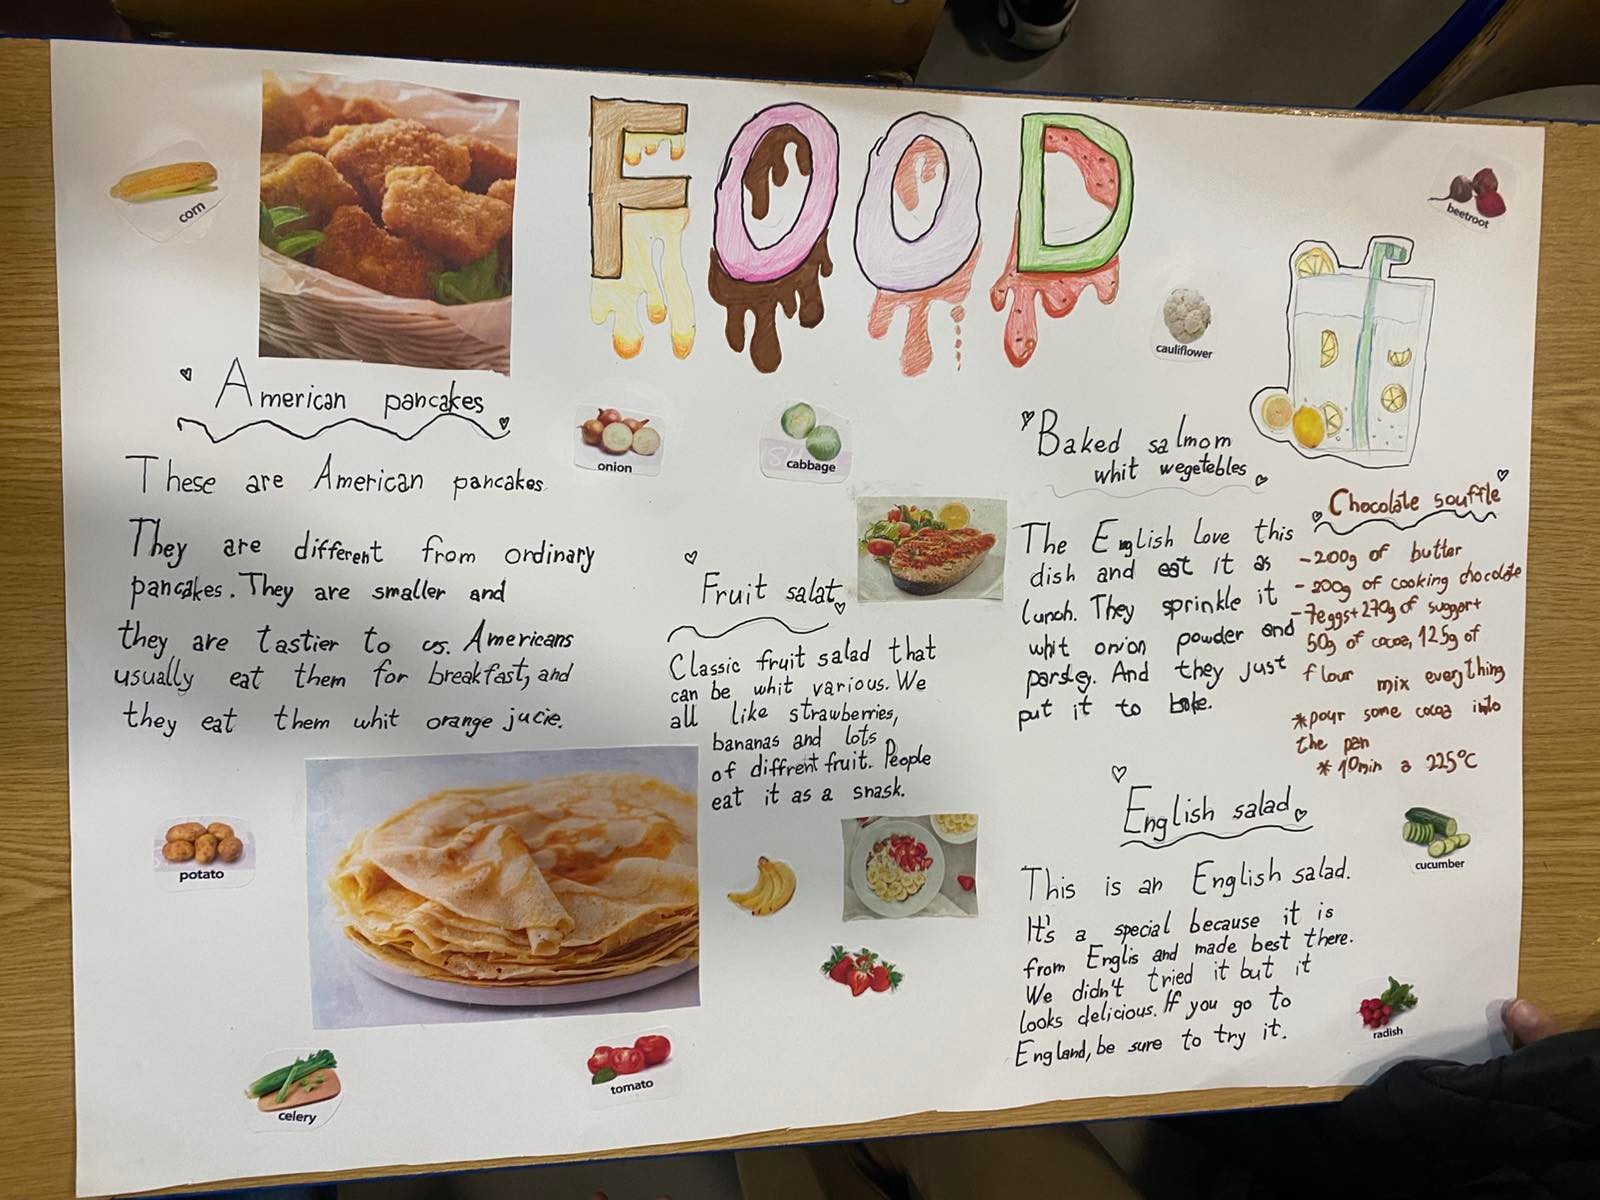 FOOD
corn
beetroot
cauliflower
onion
cabbage
American pancakes
These are American pancakes
They are different from ordinary
pancakes. They are smaller and
they are tastier to us. Americans
usually eat them for breakfast, and
they eat them whit orange jucie.
Fruit salat
Classic fruit salad that
can be whit various. We
all like strawberries,
bananas and lots
of diffrent fruit. People
eat it as a snask.
Baked salmom
whit wegetebles
The English love this
dish and eat it as
lunch. They sprinkle it
whit onion powder and
parsley. And they just
put it to bake.
Chocolate souffle
-200g of butter
-200g of cooking chocolate
-7eggs+270g of suggar+
50g of cocoa, 125g of
flour mix everything
*pour some cocoa into
the pan
*10min a 225°C
English salad
This is an English salad.
It's a special because it is
from Englis and made best there.
We didn't tried it but it
looks delicious. If you go to
England, be sure to try it.
potato
cucumber
radish
celery
tomato